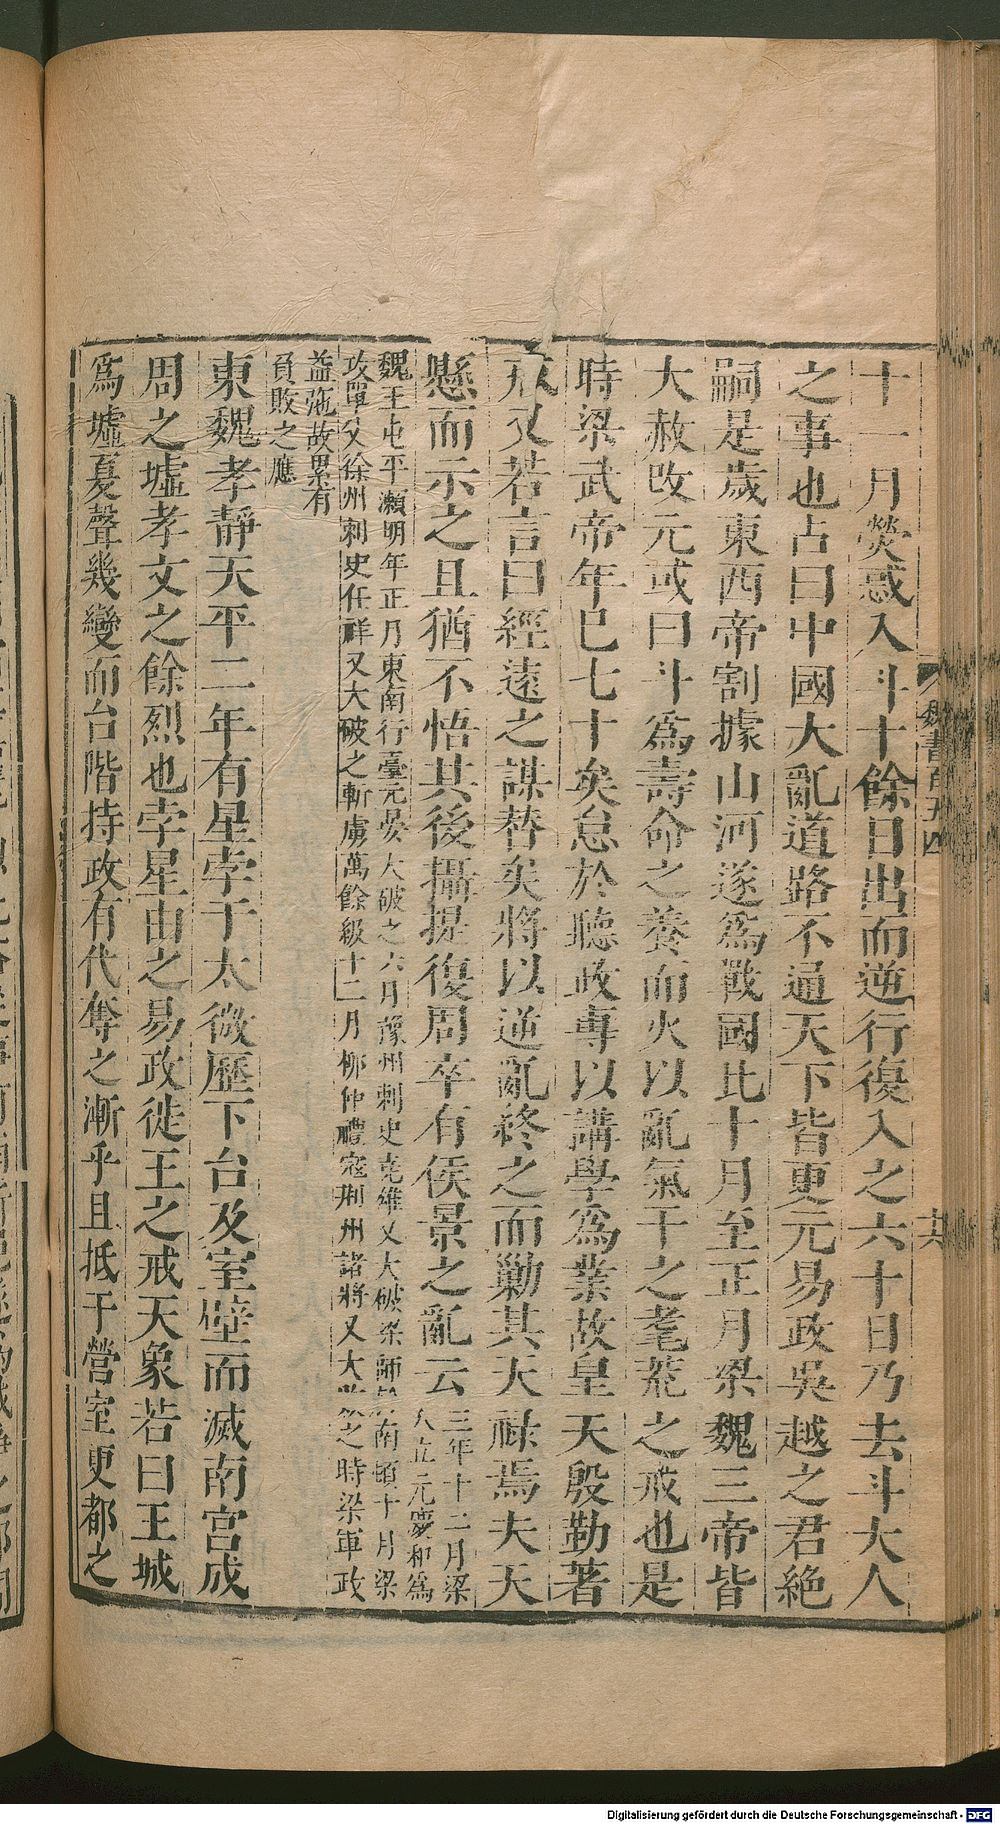 十一月熒惑入斗十餘日出而逆行復入之六十日乃去斗大人
之事也占曰中國大亂道路不通天下皆更元易政吳越之君絕
嗣是歲東西帝割據山河遂為戰國比十月至正月梁魏三帝皆
大赦改元或曰斗為壽命之養而火以亂氣干之耄荒之戒也是
時梁武帝年已七十矣怠於聽政專以講學為業故皇天殷勤著
戒又若言曰經遠之謀替矣將以逆亂終之而勦其天祿焉夫天
懸而示之且猶不悟其後攝提復周卒有侯景之亂云
三年十二月梁
人立元慶和為
魏王屯平瀨明年正月東南行臺元晏大破之六月豫州刺史堯雄又大破梁師於南頓十月梁
攻單父徐州刺史任祥又大破之斬虜萬餘級十二月柳仲禮寇荊州諸將又大敗之時梁軍政
益弛故累有
負敗之應
東魏孝靜天平二年有星孛于太微歷下台及室壁而滅南宮成
周之墟孝文之餘烈也孛星由之易政徙王之戒天象若曰王城
為墟夏聲幾變而台階持政有代奪之漸乎且抵于營室更都之
魏書百五四
十六
Digitalisierung gefördert durch die Deutsche Forschungsgemeinschaft - DFG